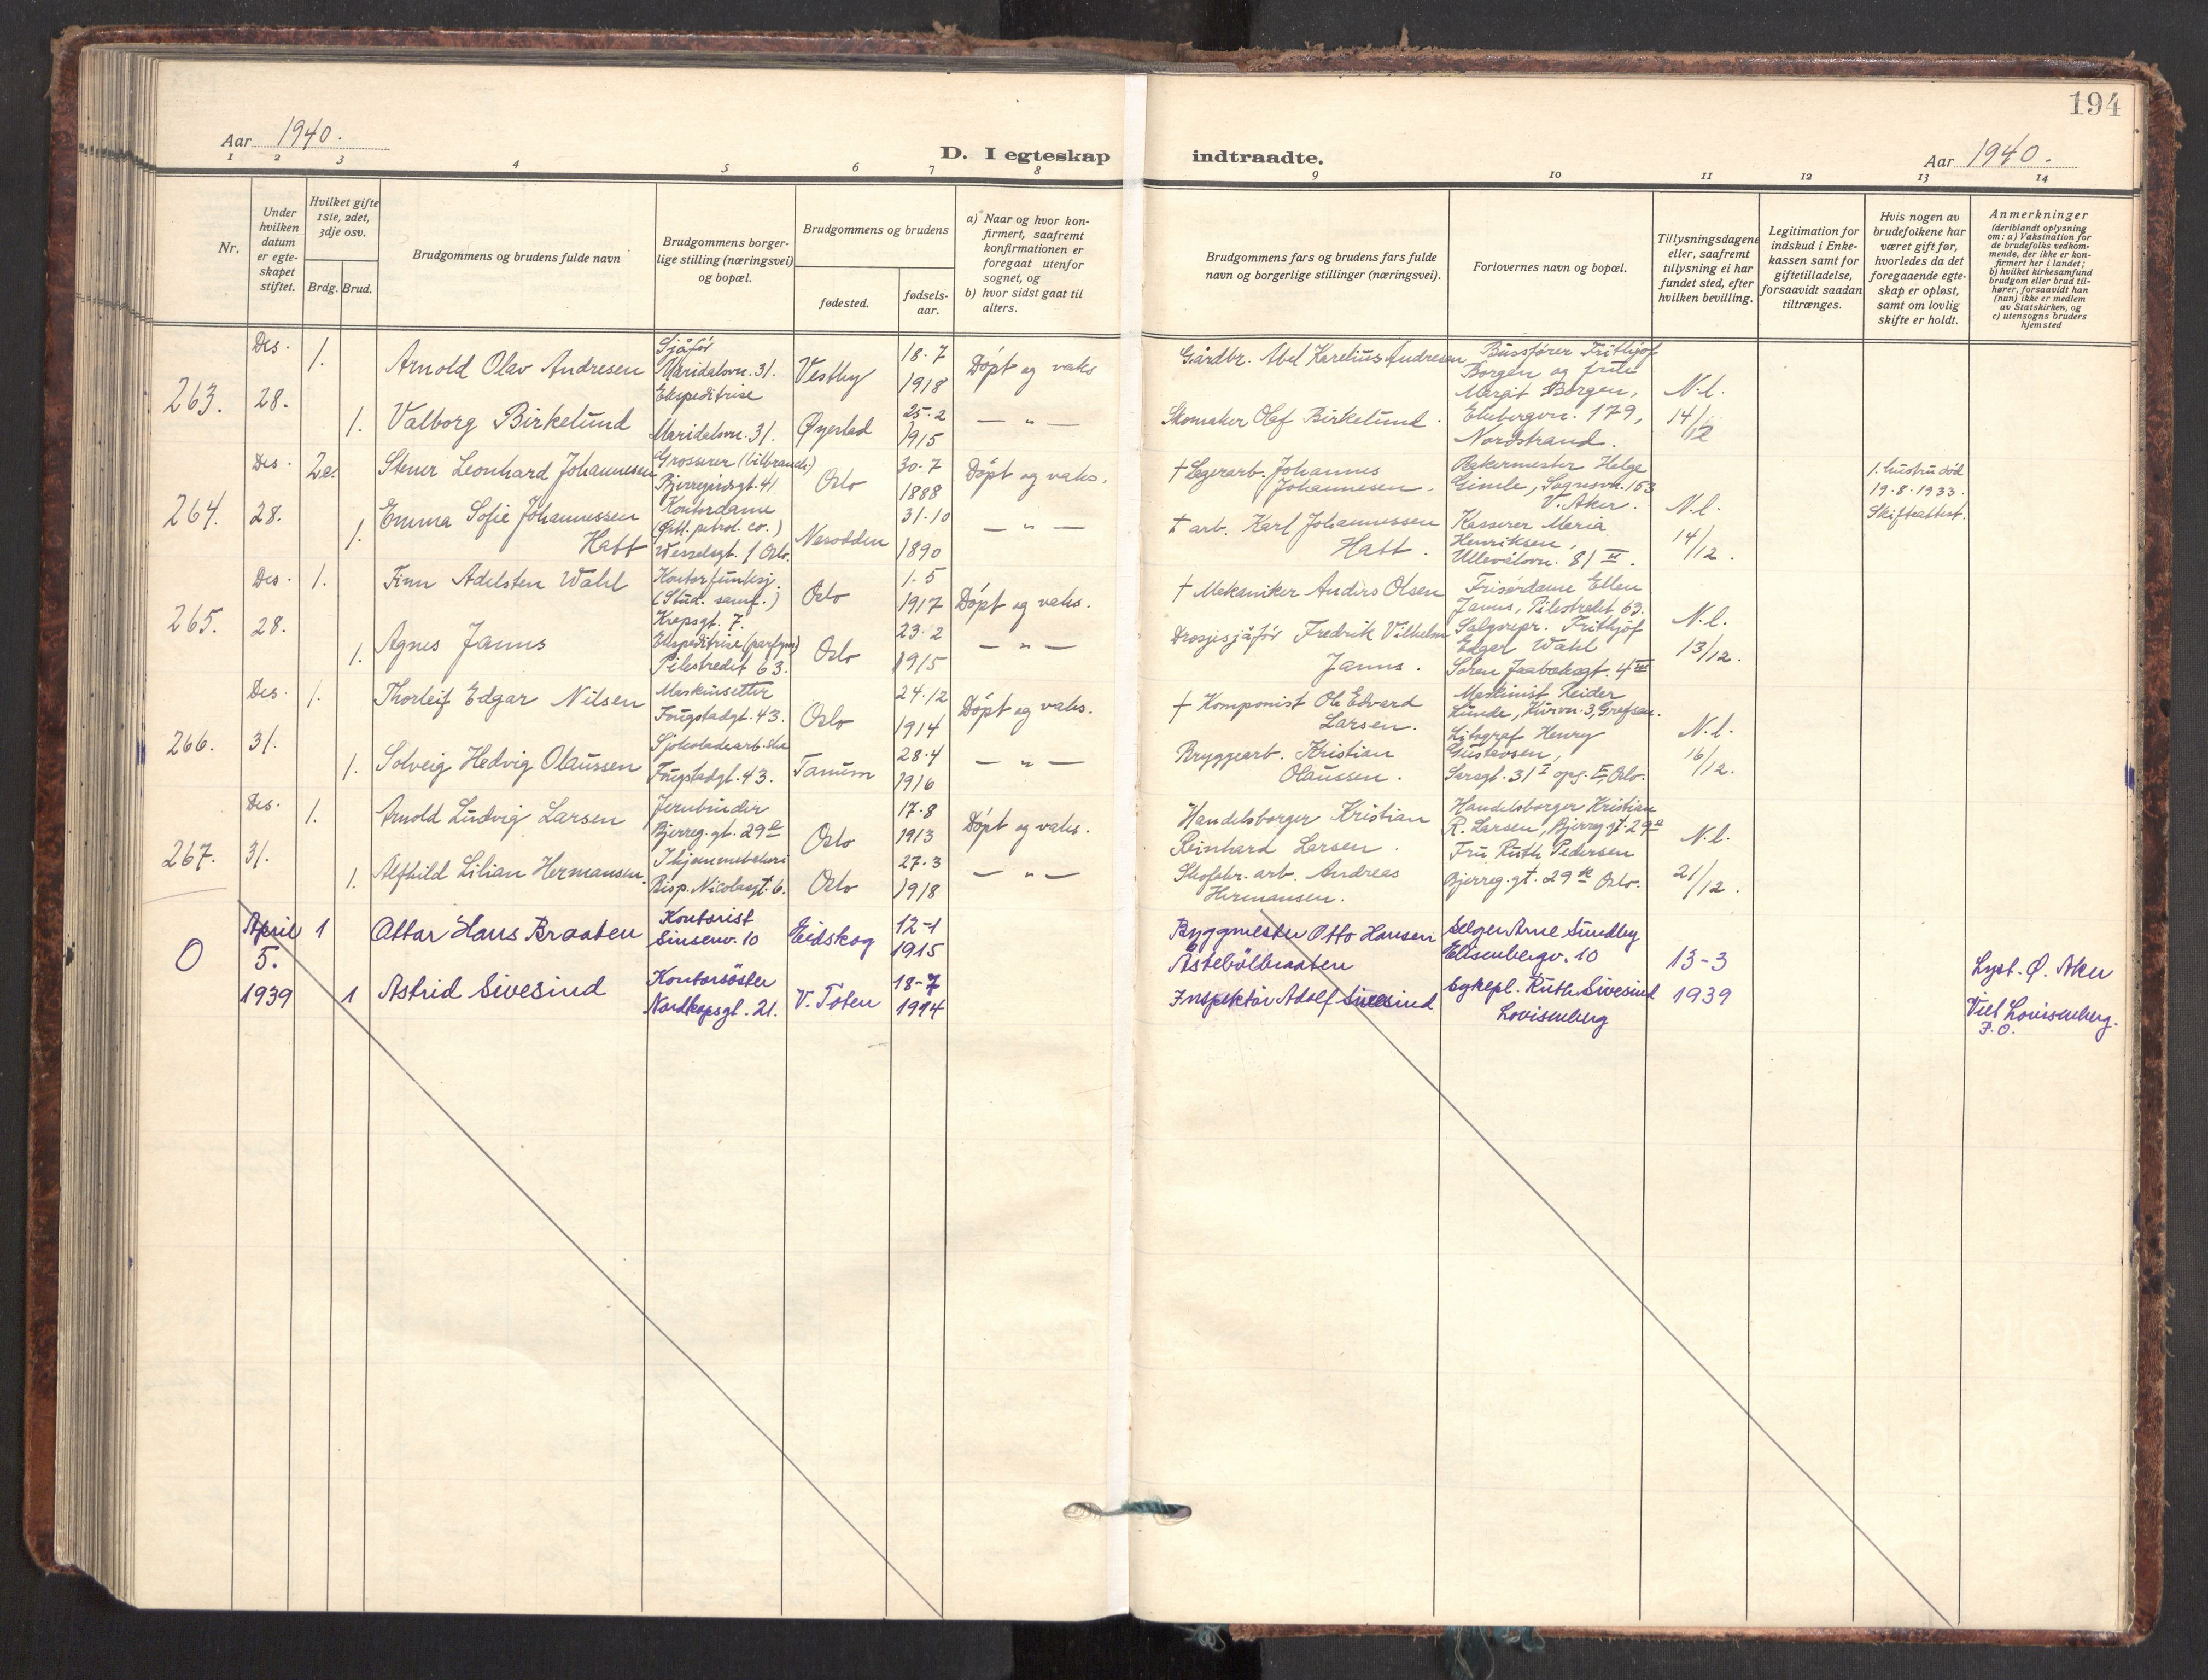 194
Aar 1940.
D. I egteskap indtraadte.
Aar 1940.
1 2 3 4 5 6 7 8 9 10 11 12 13 14
Nr.
Under
hvilken
datum
er egte-
skapet
stiftet.
Hvilket gifte
1ste, 2det,
3dje osv.
Brdg. Brud.
Brudgommens og brudens fulde navn
Brudgommens borger-
lige stilling (næringsvei)
og bopæl.
Brudgommens og brudens
fødested.
fødsels-
aar.
a) Naar og hvor kon-
firmert, saafremt
konfirmationen er
foregaat utenfor
sognet, og
b) hvor sidst gaat til
alters.
Brudgommens fars og brudens fars fulde
navn og borgerlige stillinger (næringsvei).
Forlovernes navn og bopæl.
Tillysningsdagene
eller, saafremt
tillysning ei har
fundet sted, efter
hvilken bevilling.
Legitimation for
indskud i Enke-
kassen samt for
giftetilladelse,
forsaavidt saadan
tiltrænges.
Hvis nogen av
brudefolkene har
været gift før,
hvorledes da det
foregaaende egte-
skap er opløst,
samt om lovlig
skifte er holdt.
Anmerkninger
(deriblandt oplysning
om: a) Vaksination for
de brudefolks vedkom-
mende, der ikke er kon-
firmert her i landet;
b) hvilket kirkesamfund
brudgom eller brud til-
hører, forsaavidt han
(hun) ikke er medlem
av Statskirken, og
c) utensogns bruders
hjemsted
263.
Des.
28.
1.
Arnold Olav Andresen
Sjåfør
Maridalsvn. 31.
Vestby
18-7
1918
Døpt og vaks
Gårdbr. Abel Karelius Andresen
Bussfører Frithjof
Borgen og frue
Margit Borgen,
Ekebergvn. 179,
Nordstrand.
N.l.
14/12
1.
Valborg Birkelund
Ekspeditrise
Maridalsvn. 31.
Øyestad
25-2
1915
— " —
Skomaker Olaf Birkelund.
264.
Des.
28.
2e.
Stener Leonhard Johannesen
Grosserer (bilbransj.)
Bjerregårdsgt. 41
Oslo
30-7
1888
Døpt og vaks.
† Lagerarb. Johannes
Johannesen.
Rekermester Helge
Gimle, Sognsvn. 153
V. Aker.
N.l.
14/12.
1. hustru død
19-8-1933.
Skifteattest.
1.
Emma Sofie Johannessen
Hatt
Kontordame
(Østl. petrol. co.)
Wesselsgt. 1 Oslo.
Nesodden
31-10
1890
— " —
† arb. Karl Johannessen
Hatt.
Kasserer Maria
Henriksen,
Ullevålsvn. 81 II.
265.
Des.
28.
1.
Finn Adelsten Wahl
Kontorfunksj.
(Stud. samf.)
Krapsgt. 7.
Oslo
1-5
1917
Døpt og vaks.
† Mekaniker Anders Olsen
Frisørdame Ellen
Janus, Pilestredet 63.
N.l.
13/12.
1.
Agnes Janus
Ekspeditrise (parfym)
Pilestredet 63.
Oslo
23-2
1915
— " —
Drosjesjåfør Fredrik Vilhelm
Janus.
Salgsrepr. Frithjof
Edgar Wahl
Søren Jaabeksgt. 4 III
266.
Des.
31.
1.
Thorleif Edgar Nilsen
Maskinsetter
Fougstadgt. 43.
Oslo
24-12
1914
Døpt og vaks.
† Komponist Ole Edvard
Larsen.
Maskinist Reidar
Lunde, Kurvn. 3, Grefsen.
N.l.
16/12.
1.
Solveig Hedvig Olaussen
Sjokoladearb.ske
Fougstadgt. 43.
Tanum
28-4
1916
— " —
Bryggearb. Kristian
Olaussen.
Litograf Henry
Gustavsen,
Sarsgt. 31 I opg. E, Oslo.
267.
Des.
31.
1.
Arnold Ludvig Larsen
Jernbinder
Bjerreg. gt. 29 a
Oslo
17-8
1913
Døpt og vaks.
Handelsborger Kristian
Reinhard Larsen.
Handelsborger Kristian
R. Larsen, Bjerreg. gt. 29 a
N.l.
21/12.
1.
Alfhild Lilian Hermansen.
I hjemmebakeri
Bisp. Nicolasgt. 6.
Oslo
27-3
1918
— " —
Skofabr. arb. Andreas
Hermansen.
Fru Ruth Pedersen
Bjerreg. gt. 29 Oslo.
0
April
5.
1939
1
Ottar Hans Braaten
Kontorist
Sinsenv. 10
Eidskog
12-1
1915
Byggmester Otto Hansen
Åstebölbraaten
Selger Arne Sundby
Elisenbergv. 10
13-3
1939
Lyst. Ø. Aker
Viet Lovisenberg.
P.O.
1
Astrid Sivesind
Kontorsöster
Nordkapsgt. 21.
V. Toten
18-7
1914
Inspektör Adolf Sivesind
Sykepl. Ruth Sivesind
Lovisenberg